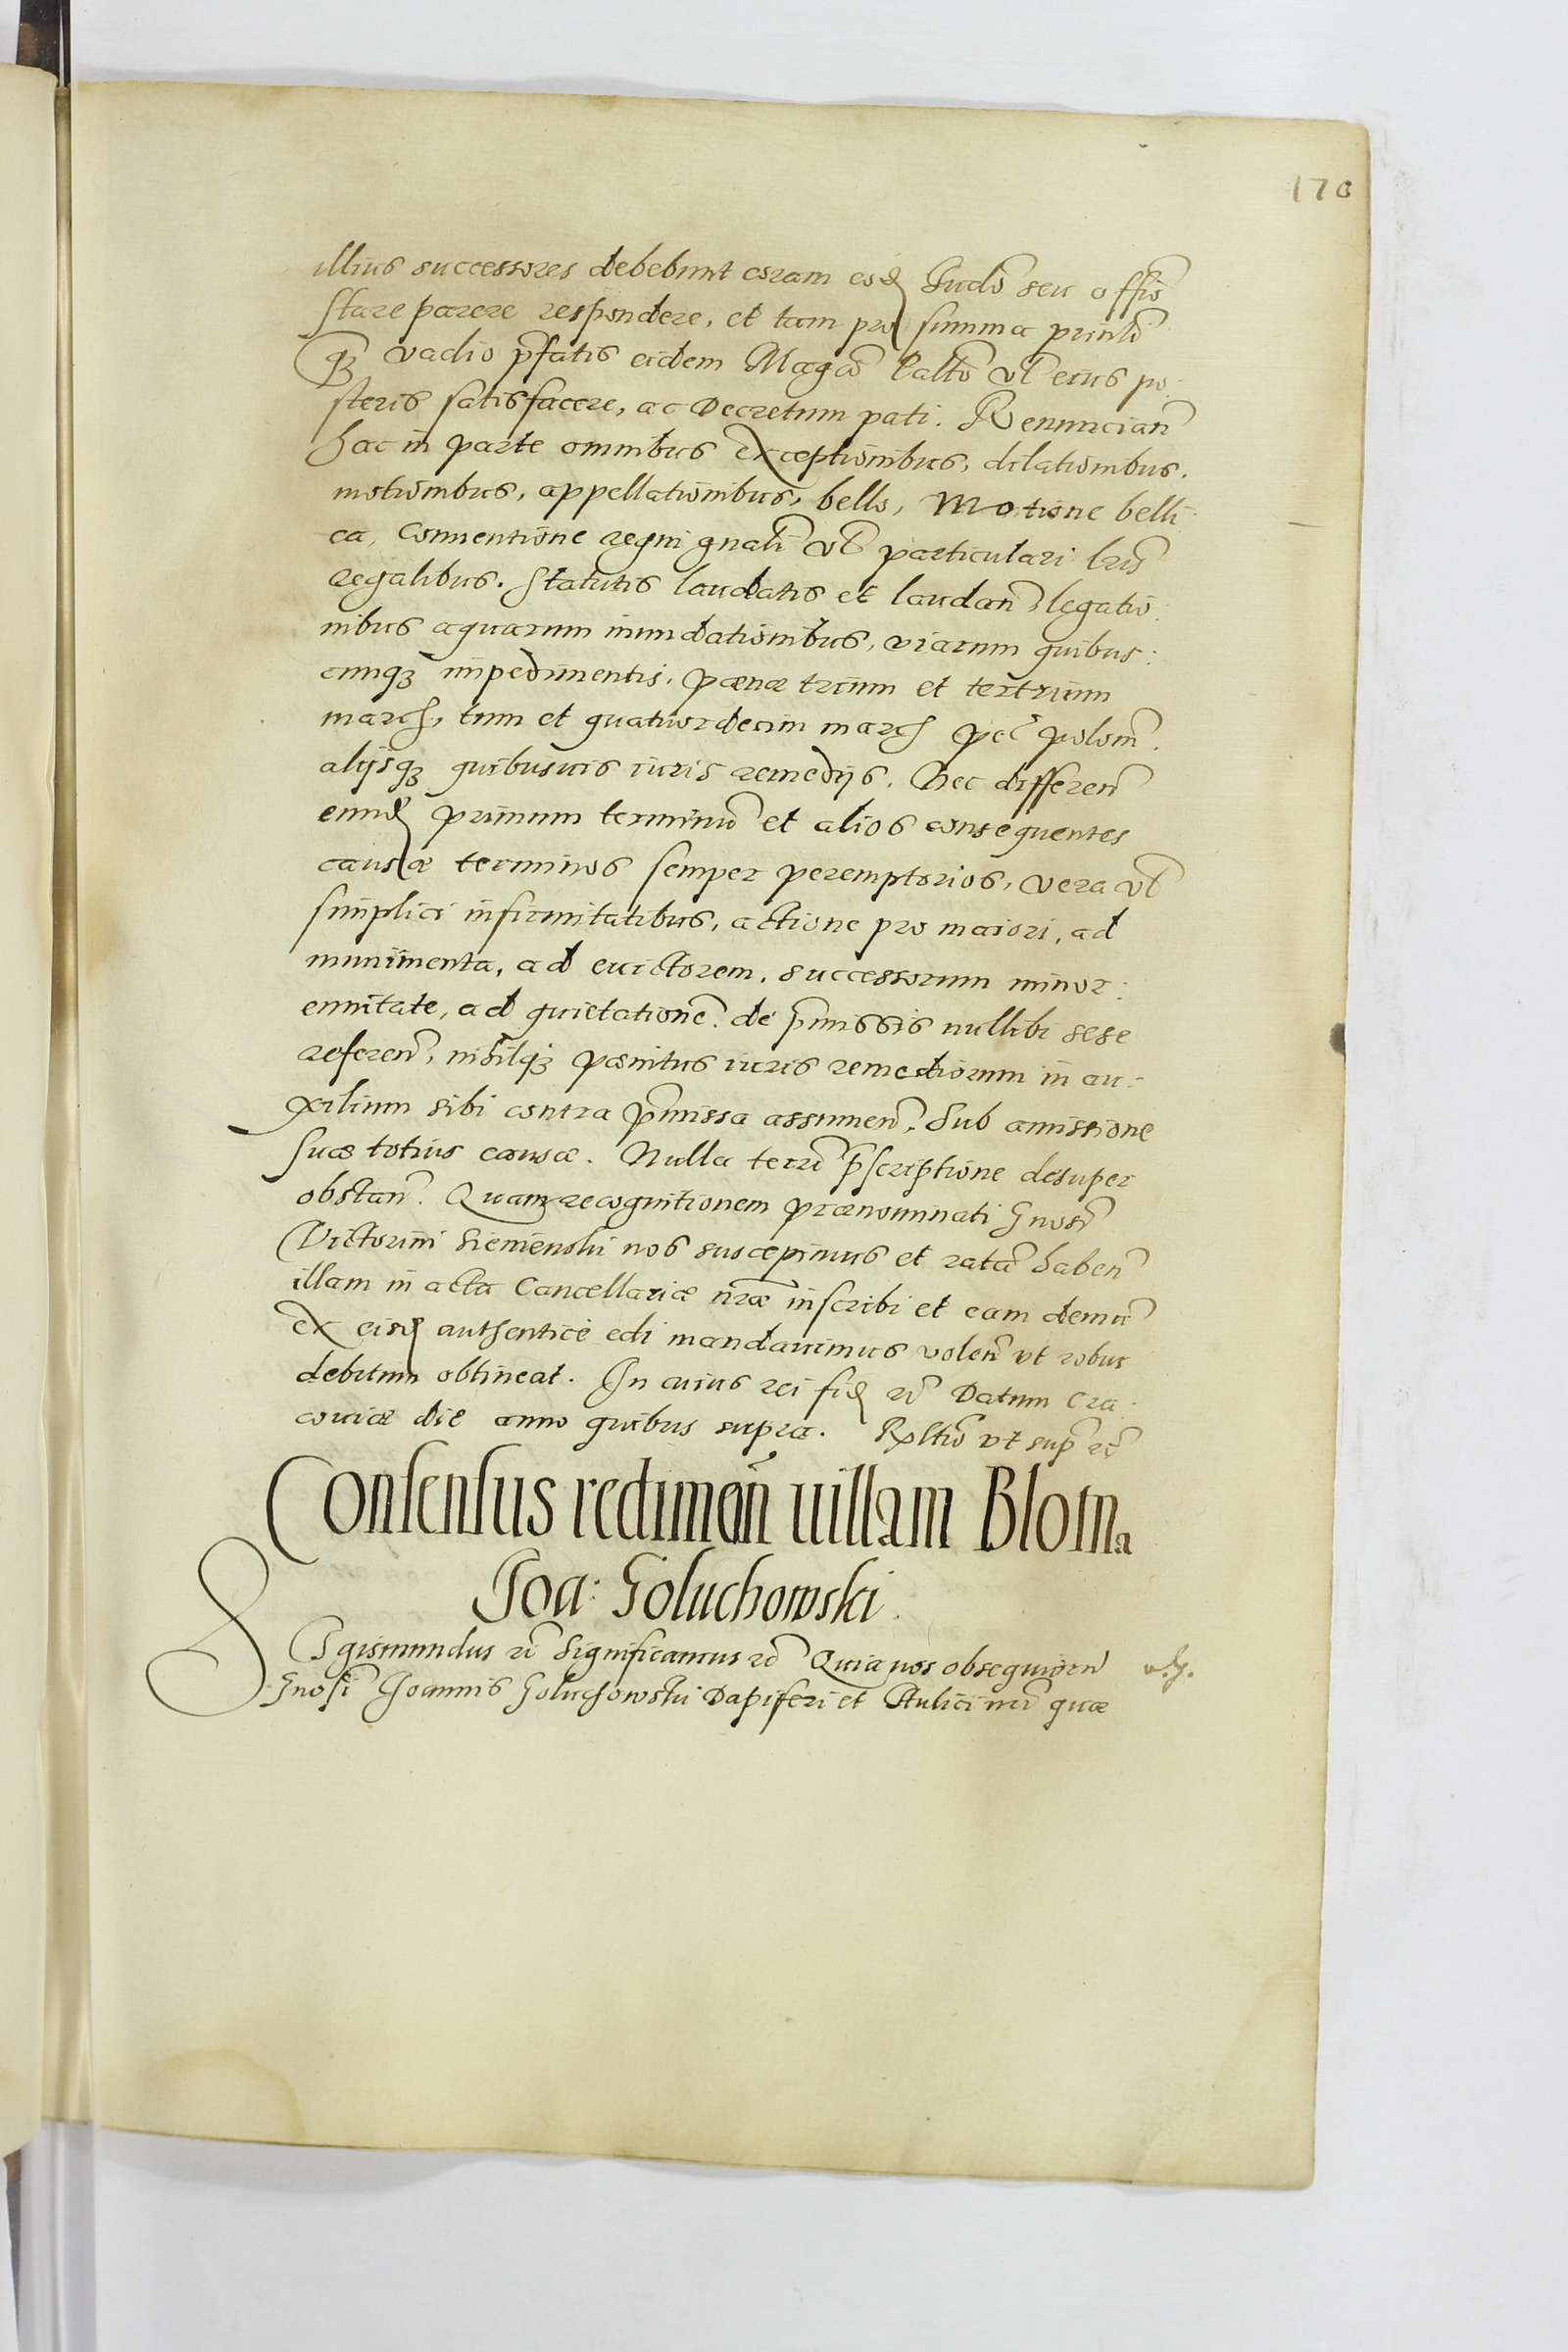 170
illius successores debebunt coram eod Iudō seu offiō
stare parere respondere, et tam pro summa prinlī
qz vadio p̄fatis eidem Magcō Calto vl̄ eius po:
steris satisfacere, ac Decretum pati. Renuncian̄
hac in parte omnibus exceptionibus, dilationibus.
motionibus, appellationibus, bello, Motione belli:
ca, Conuentione regni gnalī vl̄ particulari lrīs
regalibus. Statutis laudatis et laudan̄ legatio:
nibus aquarum inundationibus, viarum quibus:
cunqz impedimentis, pœnæ trium et tertrium
march, tum et quatuordecim march pec̄ polon̄.
alijsqz quibusuis iuris remedijs. Nec differen̄
eund primum terminū et alios consequentes
causæ terminos semper peremptorios, vera vl̄
simplici infirmitatibus, actione pro maiori, ad
munimenta, ad euictorem, successorum minor:
ennitate, ad quietationē. de p̄missis nullibi sese
referen̄, nihilqz pœnitus iuris remediorum in au:
xilium sibi contra p̄missa assumen̄. Sub amissione
suæ totius causæ. Nulla terrī p̄scriptione desuper
obstan̄. Quam recognitionem prænominati Gnosī
Victorini Siemienski nos suscepimus et ratā haben̄
illam in acta Cancellariæ nr̄æ inscribi et eam demū
ex eisd authenticè edi mandauimus volen̄ vt robur
debitum obtineat. In cuius rei fid rc̄ Datum Cra:
couiæ die anno quibus supra. Rxltiō vt sup̄ rc̄
Consensus redimen̄ uillam Blotna
Joa: Goluchowski.
Sigismundus rc̄ Significamus rc̄ Quia nos obsequiorū
Gnosī Joannis Goluchowski Dapiferi et Aulici nrī quæ